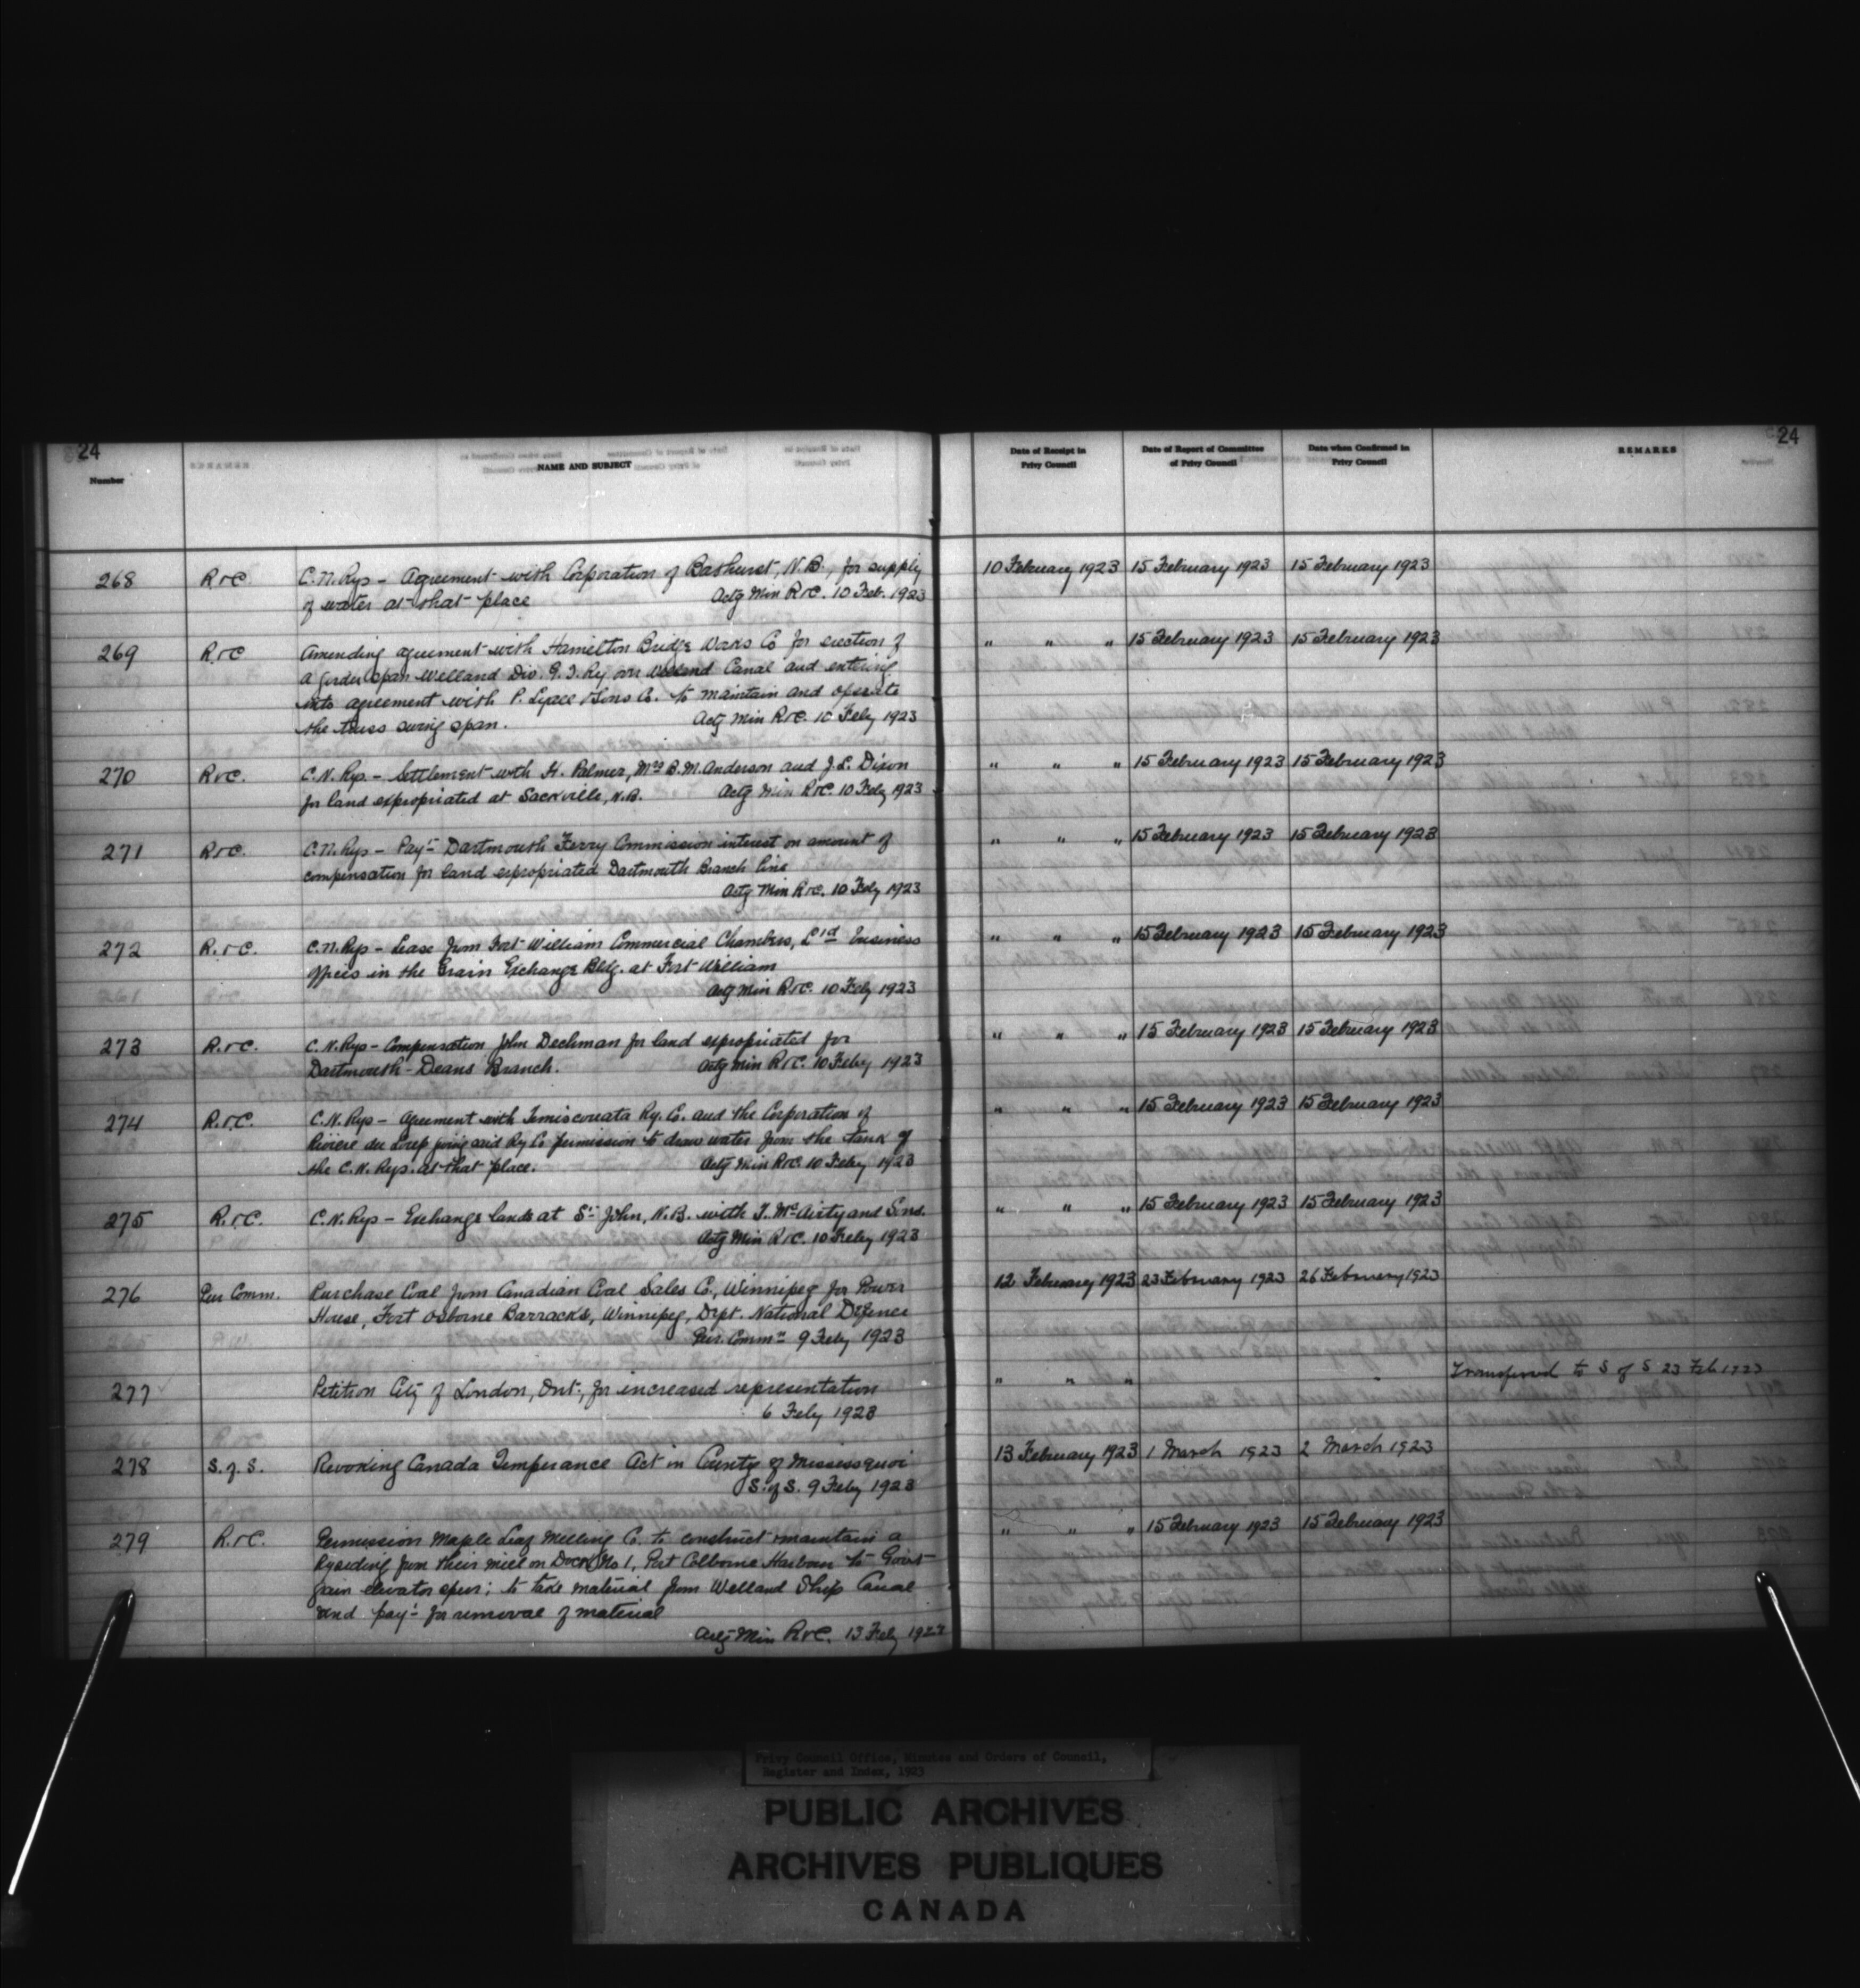 24
24
Number
NAME AND SUBJECT
Date of Receipt in Privy Council
Date of Report of Committee of Privy Council
Date when Confirmed in Privy Council
REMARKS
268 R & C. C.N. Rys – Agreement with Corporation of Bathurst, N.B., for supply 10 February 1923 15 February 1923 15 February 1923
of water at that place Actg Min R & C. 10 Feb. 1923
269 R & C Amending agreement with Hamilton Bridge Works Co for erection of " " " 15 February 1923 15 February 1923
a girder span Welland Div. G.T. Ry over Welland Canal and entering
into agreement with P. Lyall & Sons Co. to maintain and operate
the truss swing span. Actg Min R & C. 10 Feby 1923
270 R & C. C.N. Rys. – Settlement with H. Palmer, Mrs B.M. Anderson and J.L. Dixon " " " 15 February 1923 15 February 1923
for land expropriated at Sackville, N.B. Actg Min R & C. 10 Feby 1923
271 R & C. C.N. Rys – Payt Dartmouth Ferry Commission interest on amount of " " " 15 February 1923 15 February 1923
compensation for land expropriated Dartmouth Branch line
Actg Min R & C. 10 Feby 1923
272 R. & C. C.N. Rys – Lease from Fort William Commercial Chambers, Ltd business " " " 15 February 1923 15 February 1923
offices in the Grain Exchange Bldg. at Fort William
Actg Min R & C. 10 Feby 1923
273 R. & C. C.N. Rys – Compensation John Dechman for land expropriated for " " " 15 February 1923 15 February 1923
Dartmouth – Deans Branch. Actg Min R & C. 10 Feby 1923
274 R. & C. C.N. Rys – Agreement with Temiscouata Ry. Co. and the Corporation of " " " 15 February 1923 15 February 1923
Rivière du Loup giving said Ry Co permission to draw water from the tank of
the C.N. Rys. at that place. Actg Min R & C. 10 Feby 1923
275 R. & C. C.N. Rys – Exchange lands at St. John, N.B. with T. McAvity and Sons. " " " 15 February 1923 15 February 1923
Actg Min R & C. 10 Feby 1923
276 Pur Comm. Purchase Coal from Canadian Coal Sales Co., Winnipeg for Power 12 February 1923 23 February 1923 26 February 1923
House, Fort Osborne Barracks, Winnipeg, Dept. National Defence
Pur. Commn 9 Feby 1923
277 Petition City of London, Ont., for increased representation " " " Transferred to S of S 23 Feb 1923
6 Feby 1923
278 S. of S. Revoking Canada Temperance Act in County of Missessquoi 13 February 1923 1 March 1923 2 March 1923
S. of S. 9 Feby 1923
279 R. & C. Permission Maple Leaf Milling Co. to construct & maintain a " " " 15 February 1923 15 February 1923
Ry siding from their mill on Dock No 1, Port Colborne Harbour to Govt
grain elevator spur; to take material from Welland Ship Canal
and payt for removal of material
Actg Min R & C. 13 Feby 1923
Privy Council Office, Minutes and Orders of Council,
Register and Index, 1923
PUBLIC ARCHIVES
ARCHIVES PUBLIQUES
CANADA